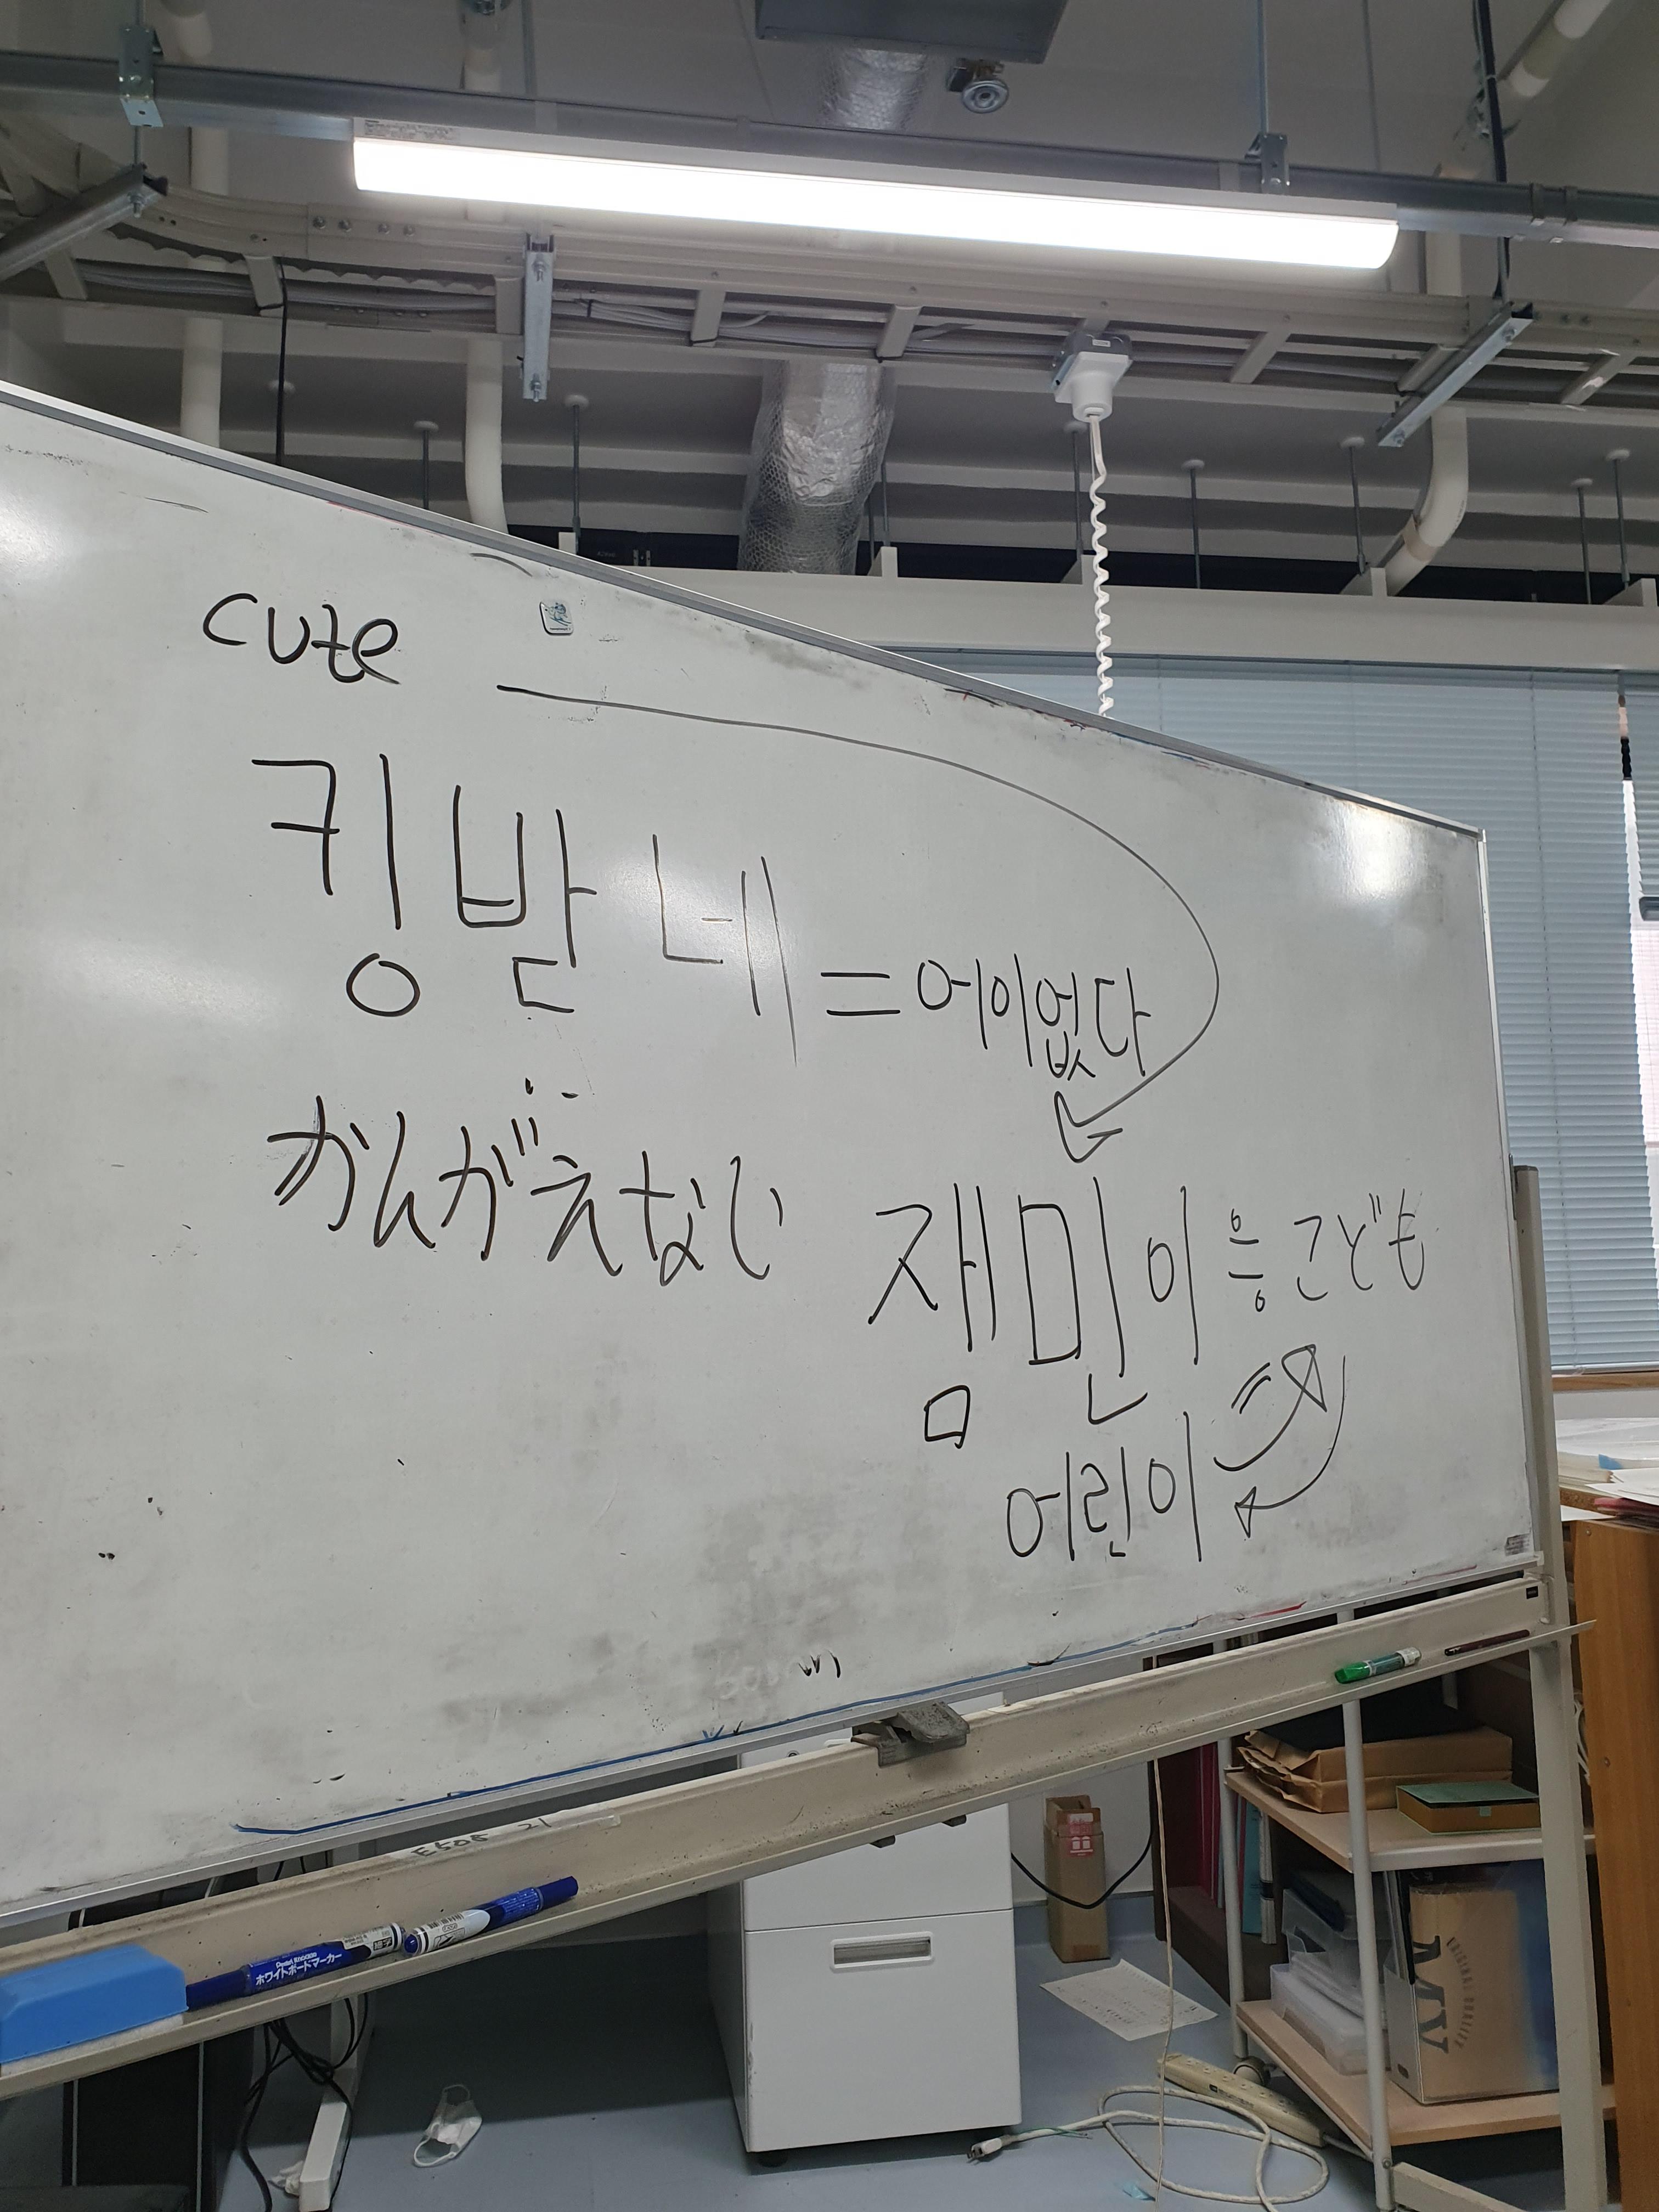 cute
킹받네 = 어이없다
かんがえない
잼민이 응 こども
어린이
E508 21
Pentel KNOCK
ホワイトボードマーカー
ORIGINAL